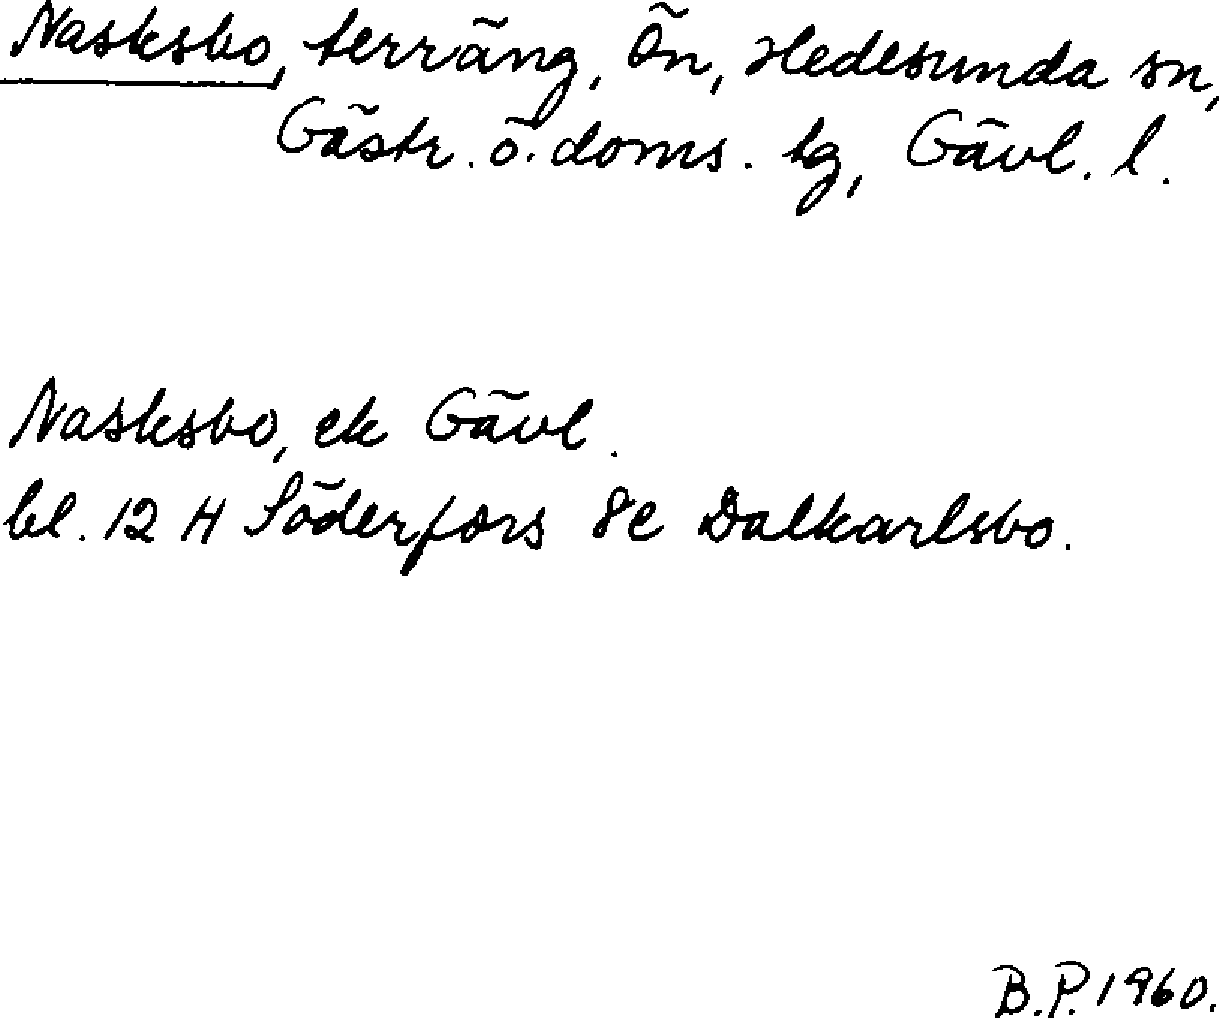 Nasksbo, terräng, Ön, Hedesunda sn,
Gästr. ö. doms. tg, Gävl. l.
Nasksbo, ek Gävl.
bl. 12 H Söderfors 8e Dalkarlsbo.
B.P. 1960.